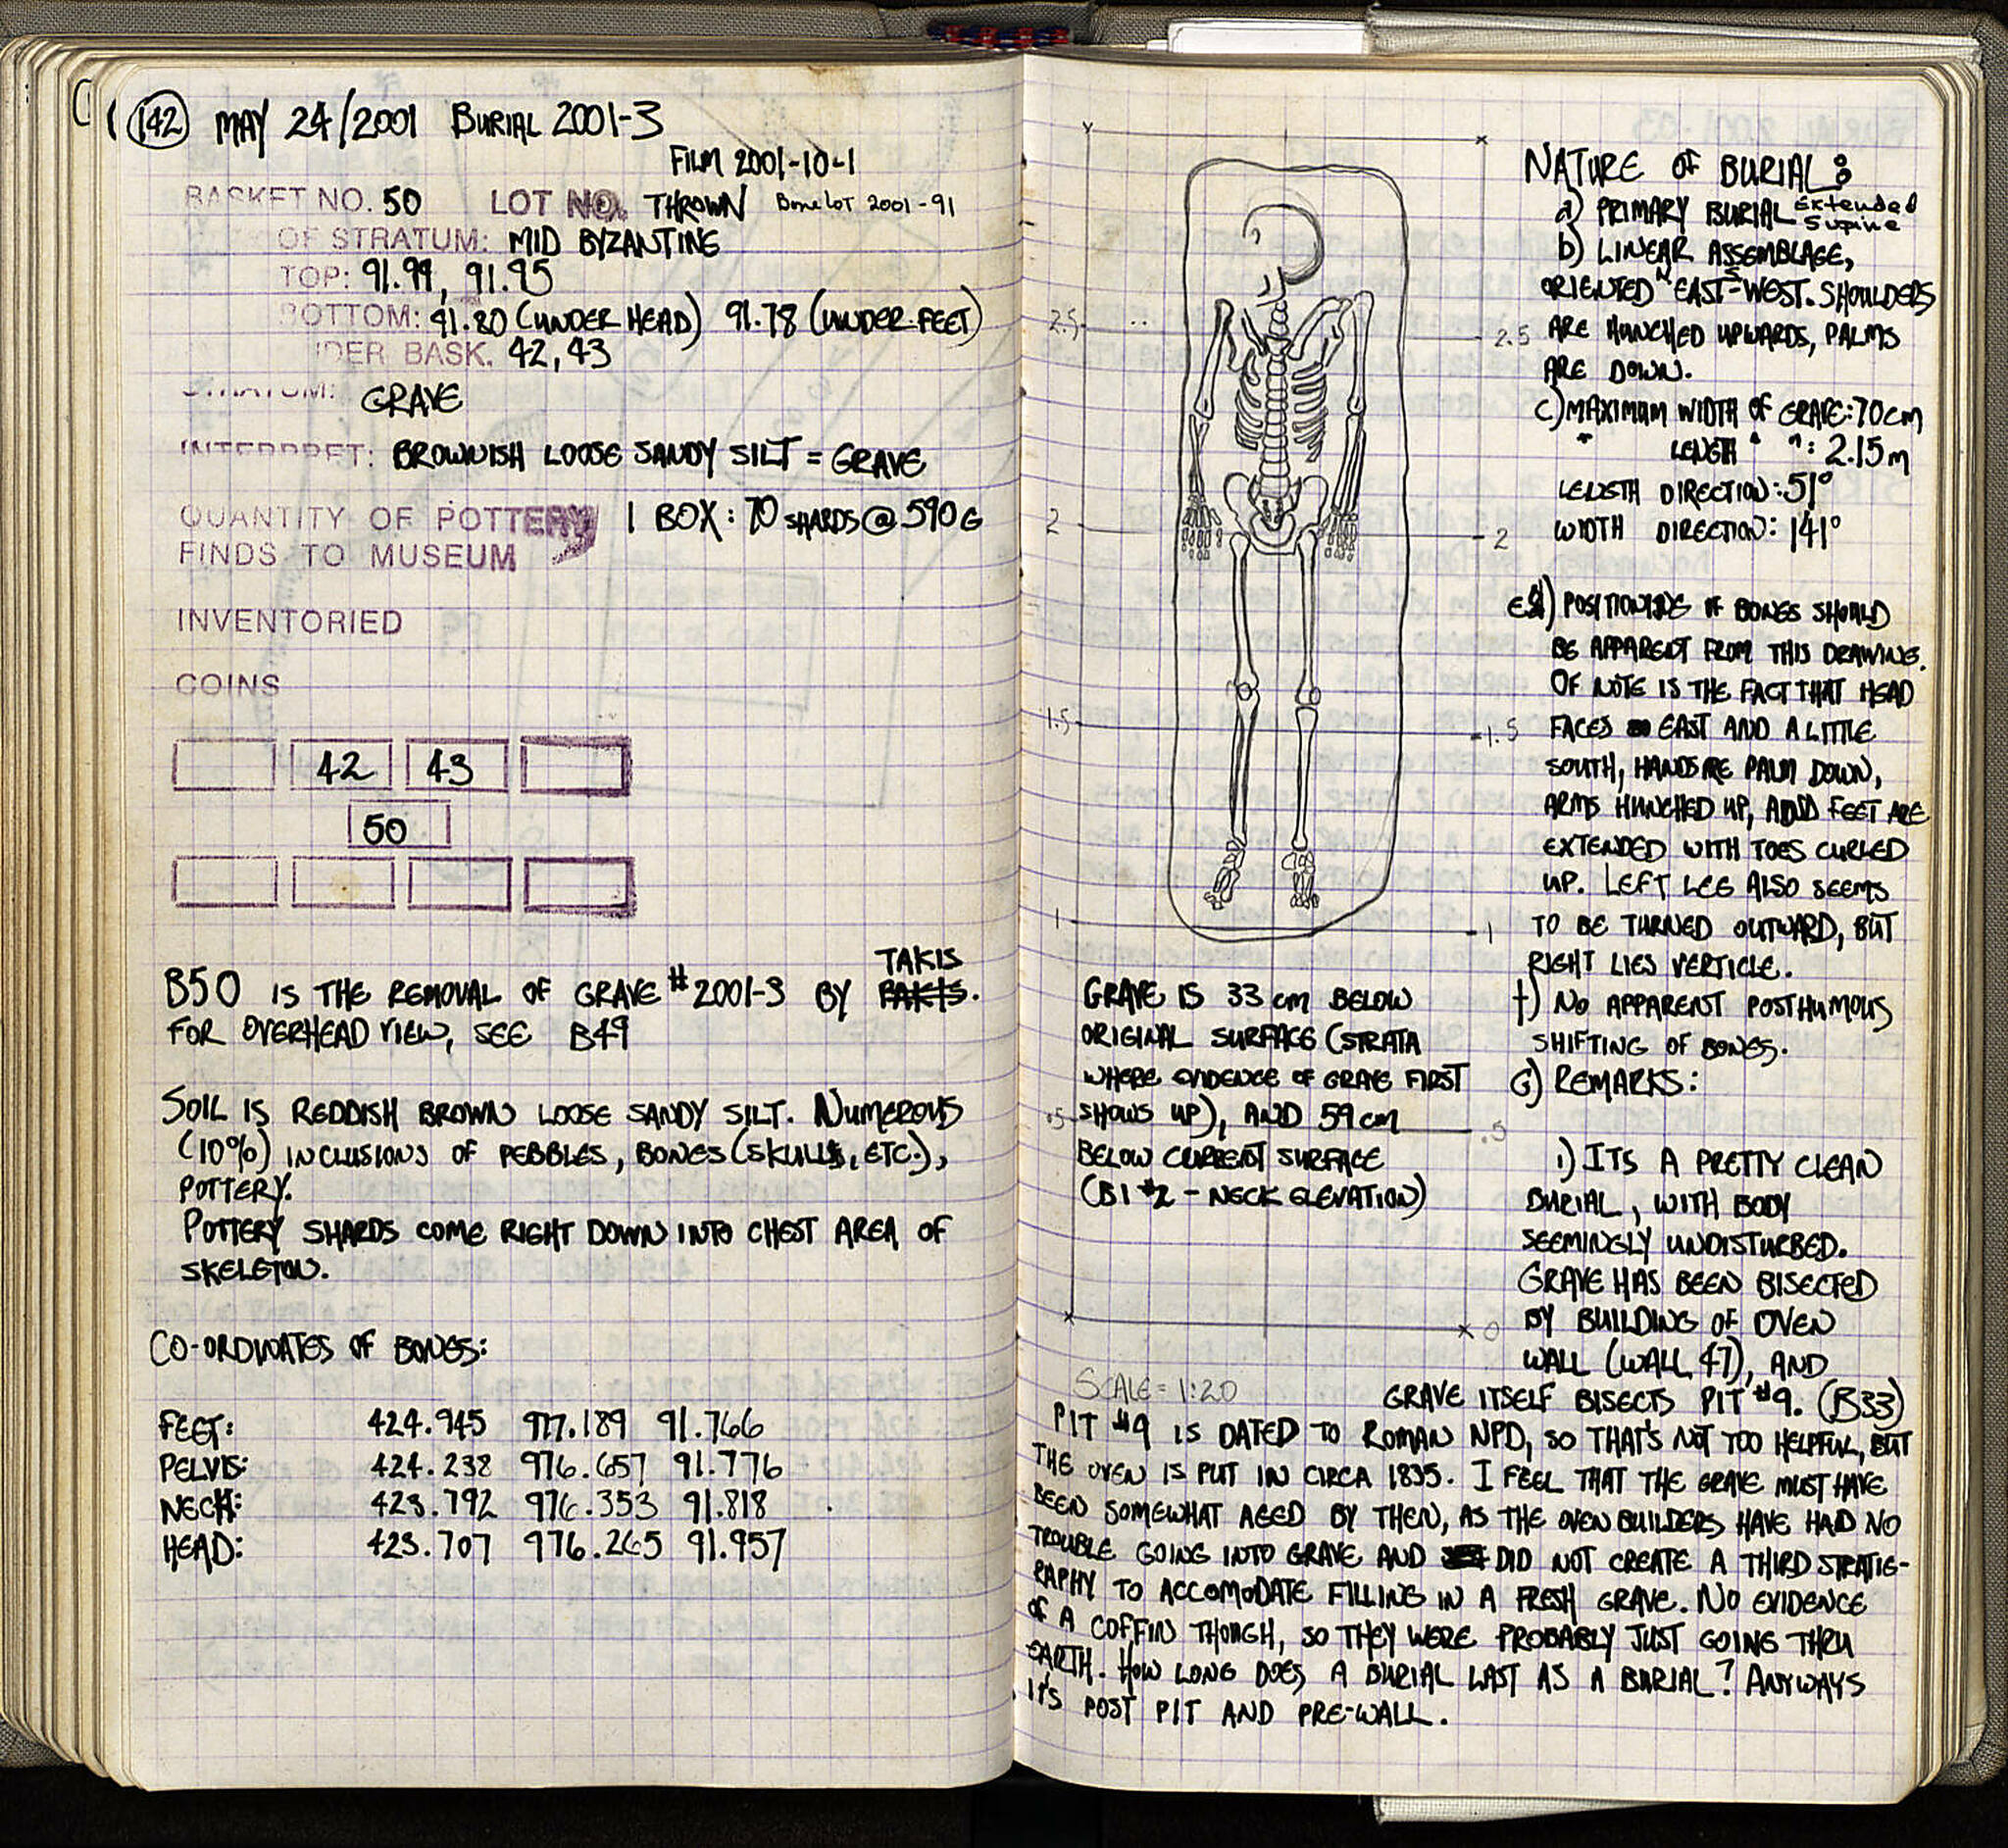 142 MAY 24/2001 BURIAL 2001-3
FILM 2001-10-1
BASKET NO. 50 LOT NO. THROWN Bone Lot 2001-91
OF STRATUM: MID BYZANTINE
TOP: 91.99, 91.95
BOTTOM: 91.80 (UNDER HEAD) 91.78 (UNDER FEET)
DER BASK. 42, 43
STRATUM: GRAVE
INTERPRET: BROWNISH LOOSE SANDY SILT = GRAVE
QUANTITY OF POTTERY 1 BOX: 70 SHARDS @ 590 G
FINDS TO MUSEUM
INVENTORIED
COINS
42 43
50
B50 IS THE REMOVAL OF GRAVE #2001-3 BY TAKIS.
FOR OVERHEAD VIEW, SEE B49
SOIL IS REDDISH BROWN LOOSE SANDY SILT. NUMEROUS
(10%) INCLUSIONS OF PEBBLES, BONES (SKULLS, ETC.),
POTTERY.
POTTERY SHARDS COME RIGHT DOWN INTO CHEST AREA OF
SKELETON.
CO-ORDINATES OF BONES:
FEET: 424.945 977.189 91.766
PELVIS: 424.232 976.657 91.776
NECK: 423.792 976.353 91.818
HEAD: 423.707 976.265 91.957
2.5 2.5
2 2
1.5 1.5
1 1
.5 .5
0
GRAVE IS 33 cm BELOW
ORIGINAL SURFACE (STRATA
WHERE EVIDENCE OF GRAVE FIRST
SHOWS UP), AND 59 cm
BELOW CURRENT SURFACE
(B1 #2 - NECK ELEVATION)
SCALE = 1:20
NATURE OF BURIAL:
a) PRIMARY BURIAL Extended
Supine
b) LINEAR ASSEMBLAGE,
ORIENTED N EAST-S WEST. SHOULDERS
ARE HUNCHED UPWARDS, PALMS
ARE DOWN.
c) MAXIMUM WIDTH OF GRAVE: 70 cm
" LENGTH " ": 2.15 m
LENGTH DIRECTION: 51°
WIDTH DIRECTION: 141°
E) POSITIONING OF BONES SHOULD
BE APPARENT FROM THIS DRAWING.
OF NOTE IS THE FACT THAT HEAD
FACES EAST AND A LITTLE
SOUTH, HANDS ARE PALM DOWN,
ARMS HUNCHED UP, AND FEET ARE
EXTENDED WITH TOES CURLED
UP. LEFT LEG ALSO SEEMS
TO BE TURNED OUTWARD, BUT
RIGHT LIES VERTICLE.
f) NO APPARENT POSTHUMOUS
SHIFTING OF BONES.
G) REMARKS:
i) ITS A PRETTY CLEAN
BURIAL, WITH BODY
SEEMINGLY UNDISTURBED.
GRAVE HAS BEEN BISECTED
BY BUILDING OF OVEN
WALL (WALL 47), AND
GRAVE ITSELF BISECTS PIT #9. (B33)
PIT #9 IS DATED TO ROMAN NPD, SO THAT'S NOT TOO HELPFUL, BUT
THE OVEN IS PUT IN CIRCA 1835. I FEEL THAT THE GRAVE MUST HAVE
BEEN SOMEWHAT AGED BY THEN, AS THE OVEN BUILDERS HAVE HAD NO
TROUBLE GOING INTO GRAVE AND DID NOT CREATE A THIRD STRATIG-
RAPHY TO ACCOMODATE FILLING IN A FRESH GRAVE. NO EVIDENCE
OF A COFFIN THOUGH, SO THEY WERE PROBABLY JUST GOING THRU
EARTH. HOW LONG DOES A BURIAL LAST AS A BURIAL? ANYWAYS
IT'S POST PIT AND PRE-WALL.